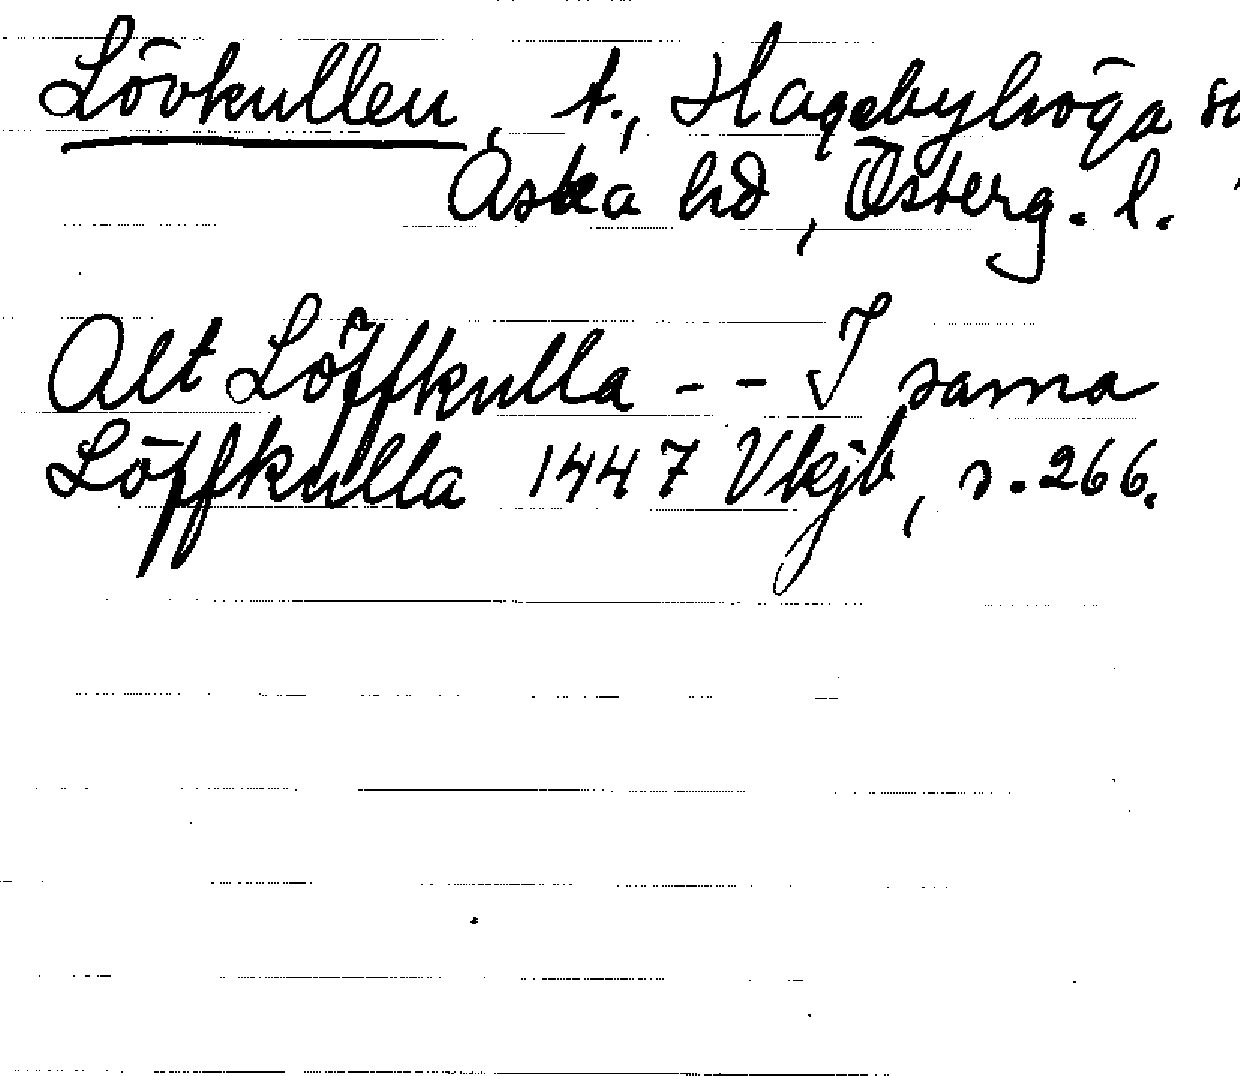 Lövkullen, t., Hagebyhöga
Aska hd, Österg. l.
Alt Löffkulla - - I sama
Löffkulla 1447 Vkjb, s. 266.